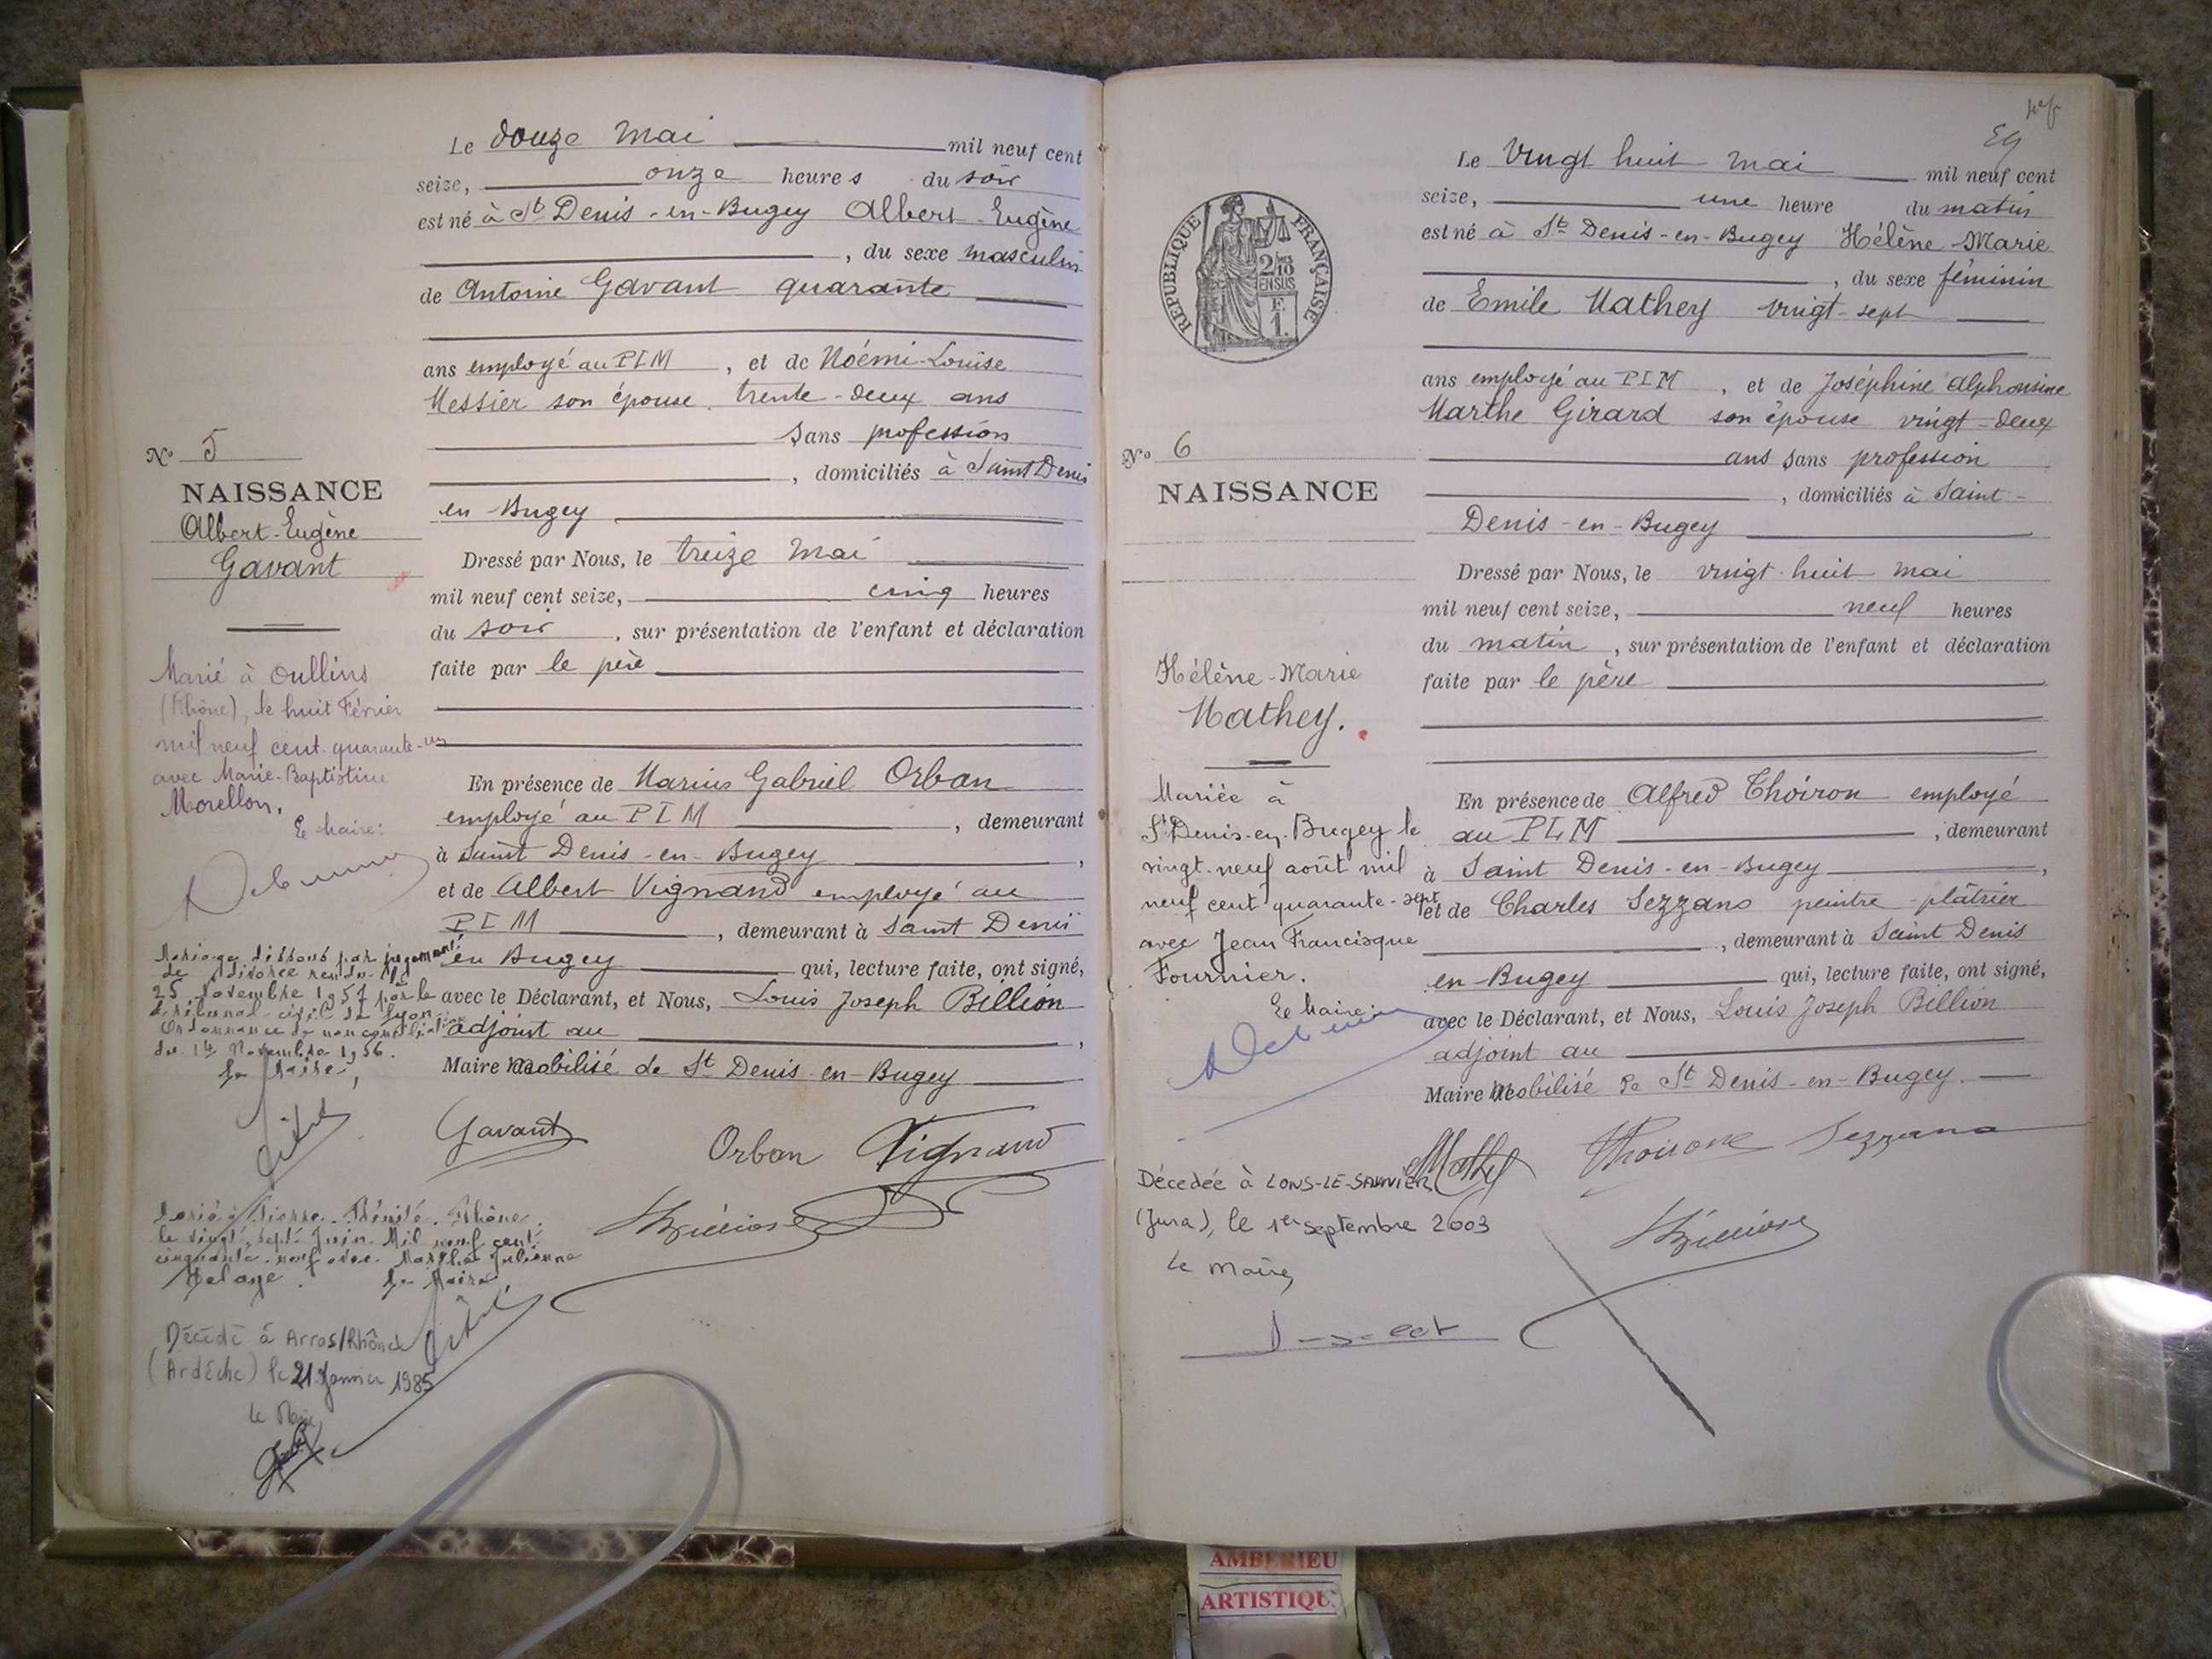 Le douze Mai mil neuf cent
seize, onze heures du soir
est né à St Denis-en-Bugey Albert-Eugène
, du sexe masculin
de Antoine Gavant quarante
ans employé au PLM , et de Noémi-Louise
Messier son épouse trente-deux ans
sans profession
, domiciliés à Saint Denis
en-Bugey
Dressé par Nous, le treize Mai
mil neuf cent seize, cinq heures
du soir , sur présentation de l'enfant et déclaration
faite par le père
En présence de Marius Gabriel Orban
employé au PLM , demeurant
à Saint Denis-en-Bugey ,
et de Albert Vignand employé au
PLM , demeurant à Saint Denis
en Bugey qui, lecture faite, ont signé,
avec le Déclarant, et Nous, Louis Joseph Billion
adjoint au ,
Maire mobilisé de St Denis-en-Bugey
Gavant
Orban Vignand
Billion
No 5
NAISSANCE
Albert-Eugène
Gavant
Marié à Oullins
(Rhône), le huit Février
mil neuf cent quarante-un
avec Marie-Baptistine
Morellon.
Le Maire:
Mariage dissous par jugement
de divorce rendu le
25 Novembre 1957 par le
tribunal civil de Lyon
Ordonnance de non conciliation
du 14 Novembre 1956.
Le Maire,
Marié à Pierre-Bénite, Rhône,
le vingt-sept Juin Mil neuf cent
cinquante-neuf avec Marthe Julienne
Delaye. Le Maire
Décédé à Arras/Rhône
(Ardèche) le 21 Janvier 1985
Le Maire
Le Vingt huit Mai mil neuf cent
seize, une heure du matin
est né à St Denis-en-Bugey Hélène-Marie
, du sexe féminin
de Emile Mathey vingt-sept
ans employé au PLM , et de Joséphine Alphonsine
Marthe Girard son épouse vingt-deux
ans sans profession
, domiciliés à Saint-
Denis-en-Bugey
Dressé par Nous, le vingt-huit Mai
mil neuf cent seize, neuf heures
du matin , sur présentation de l'enfant et déclaration
faite par le père
En présence de Alfred Thoiron employé
au PLM , demeurant
à Saint Denis-en-Bugey ,
et de Charles Sezzano peintre-plâtrier
, demeurant à Saint Denis
en-Bugey qui, lecture faite, ont signé,
avec le Déclarant, et Nous, Louis Joseph Billion
adjoint au
Maire mobilisé de St Denis-en-Bugey.
Mathey Thoiron Sezzano
Billion
REPUBLIQUE FRANÇAISE
2/10
EN SUS
F.
1.
No 6
NAISSANCE
Hélène-Marie
Mathey.
Mariée à
St Denis-en-Bugey le
vingt-neuf août mil
neuf cent quarante-sept
avec Jean Francisque
Fournier.
Le Maire:
Décédée à LONS-LE-SAUNIER
(Jura), le 1er septembre 2003
Le Maire,
AMBERIEU
ARTISTIQU